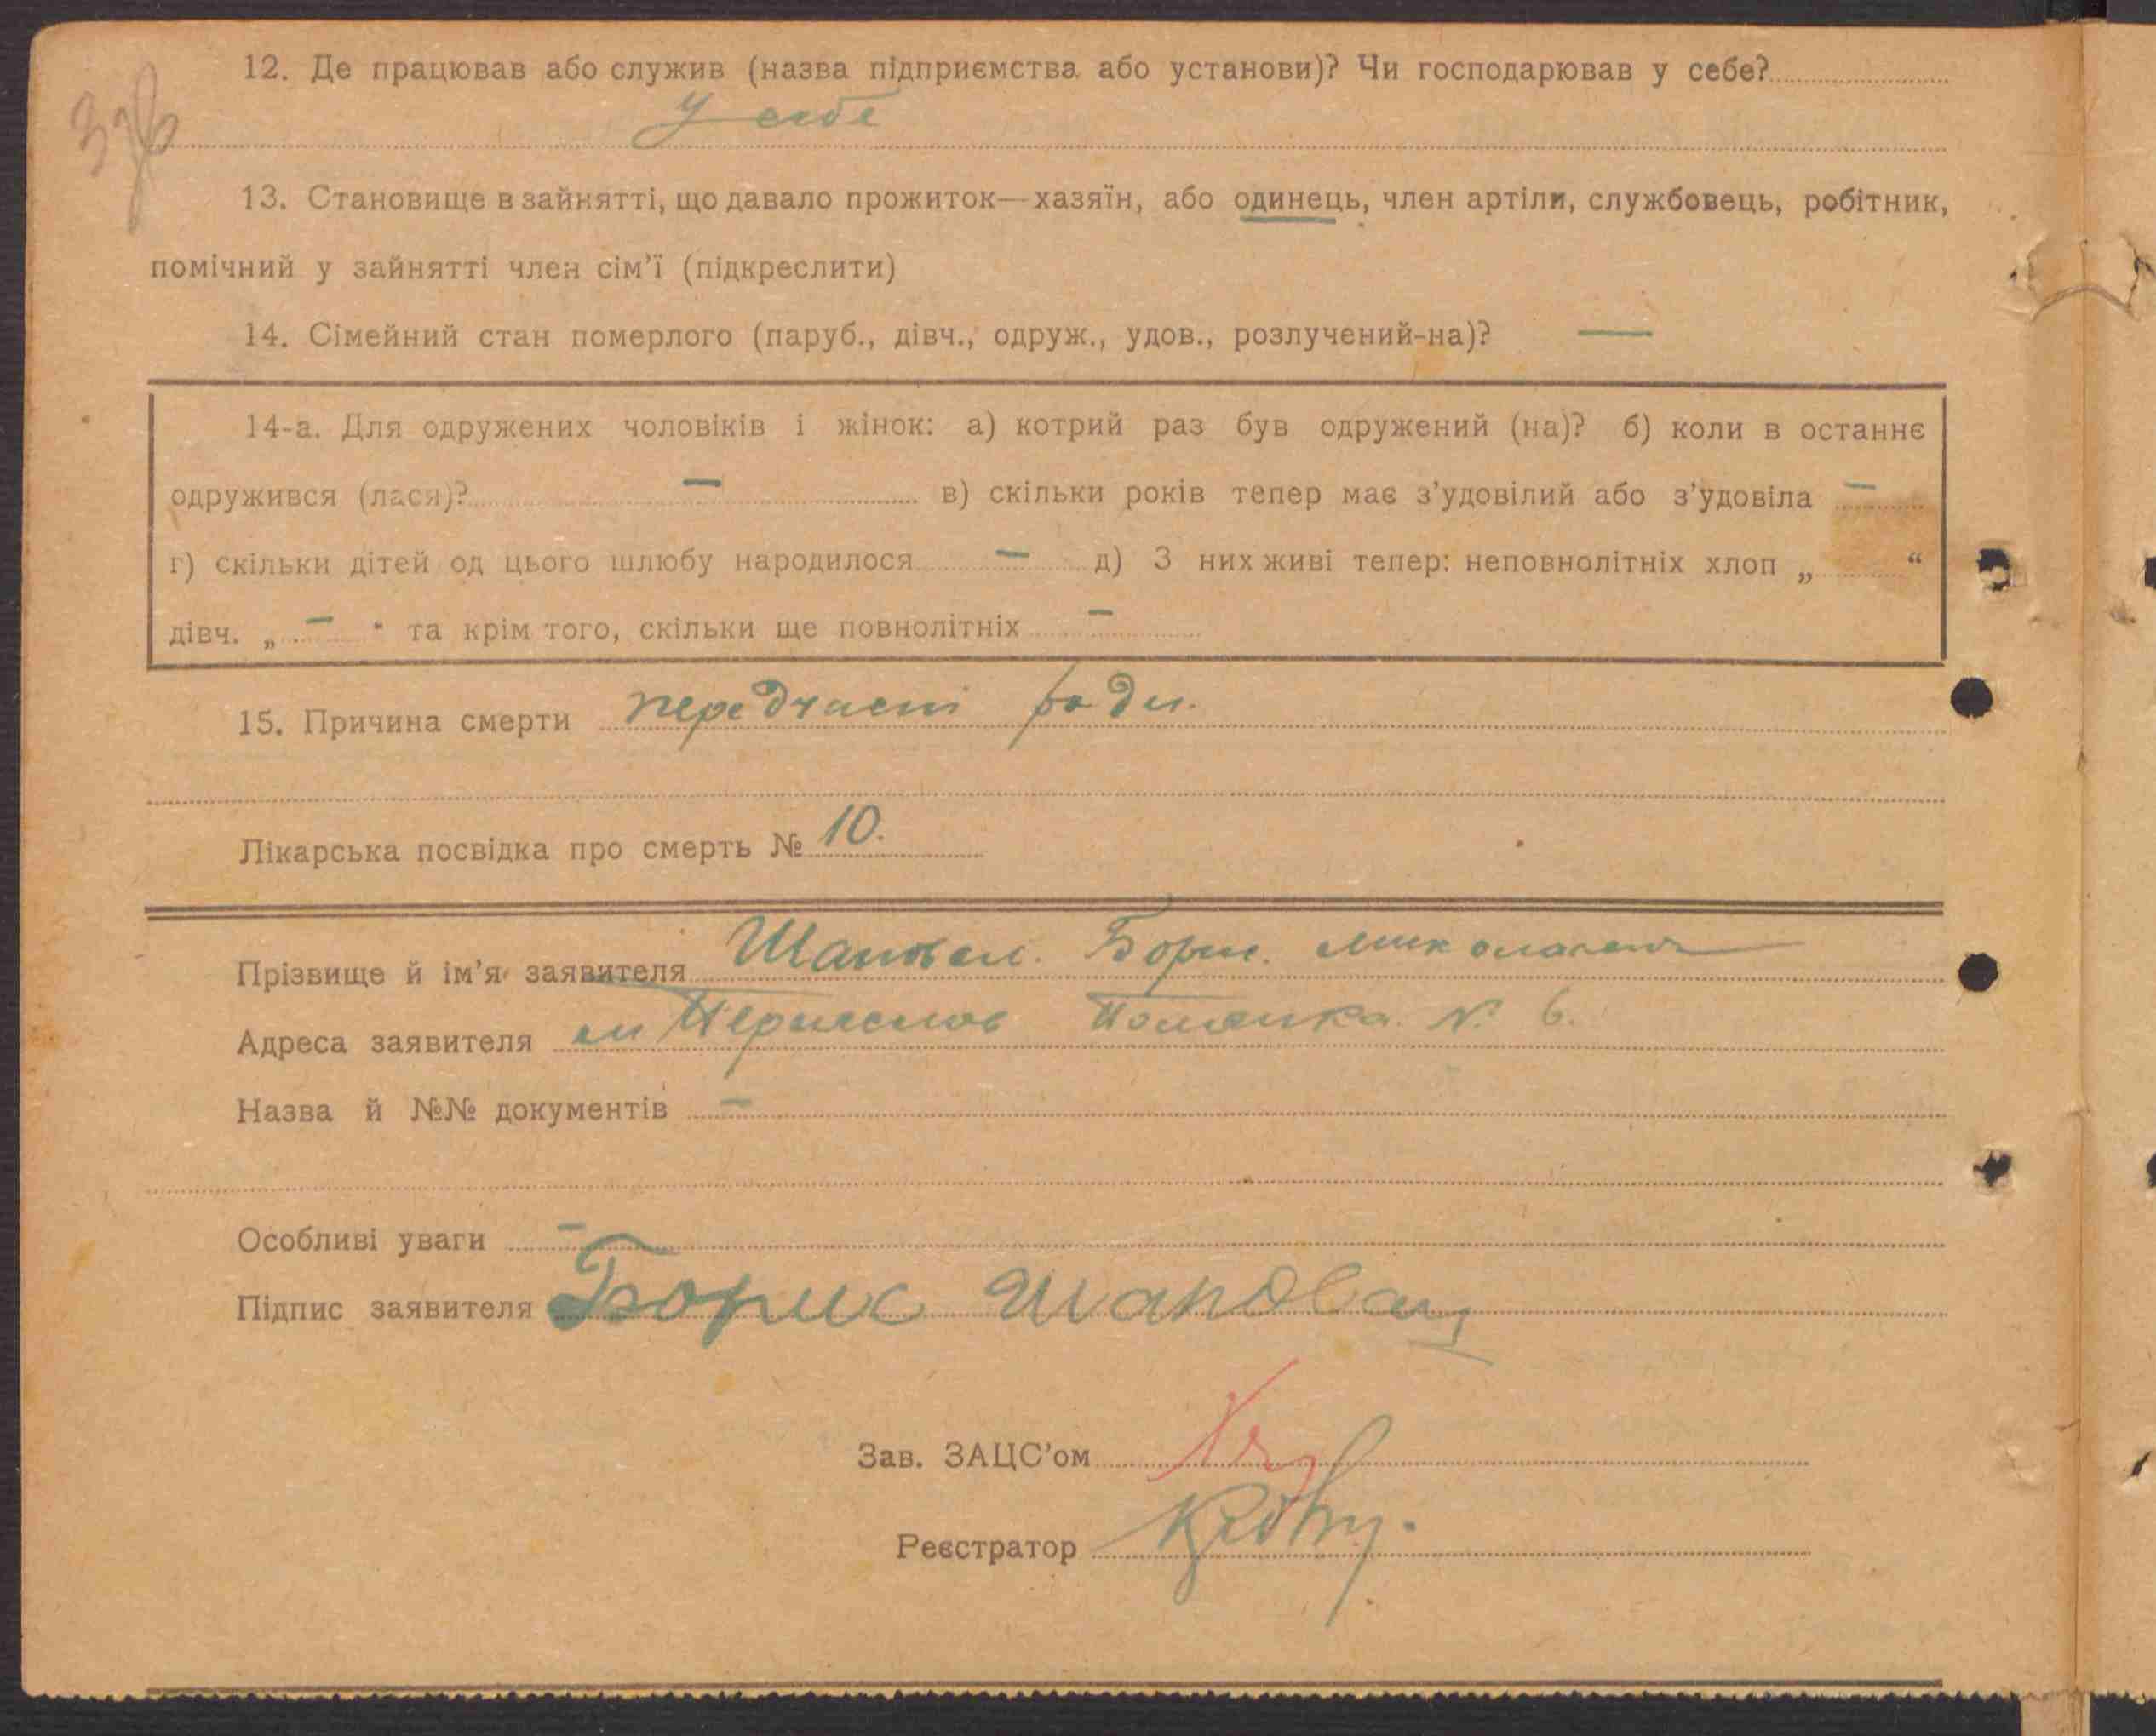 12. Де працював або служив (назва підприємства або установи)? Чи господарював у себе?
У себе
13. Становище в зайнятті, що давало прожиток—хазяїн, або одинець, член артіли, службовець, робітник,
помічний у зайнятті член сім'ї (підкреслити)
14. Сімейний стан померлого (паруб., дівч., одруж., удов., розлучений-на)? —
14-а. Для одружених чоловіків і жінок: а) котрий раз був одружений (на)? б) коли в останнє
одружився (лася)? — в) скільки років тепер має з'удовілий або з'удовіла —
г) скільки дітей од цього шлюбу народилося — д) З них живі тепер: неповнолітніх хлоп „ “
дівч. „ — “ та крім того, скільки ще повнолітніх —
15. Причина смерти передчасні роди.
Лікарська посвідка про смерть № 10.
Прізвище й ім'я заявителя Шаповал. Борис.
Адреса заявителя м № 6.
Назва й №№ документів —
Особливі уваги —
Підпис заявителя Борис Шаповал
Зав. ЗАЦС'ом
Реєстратор